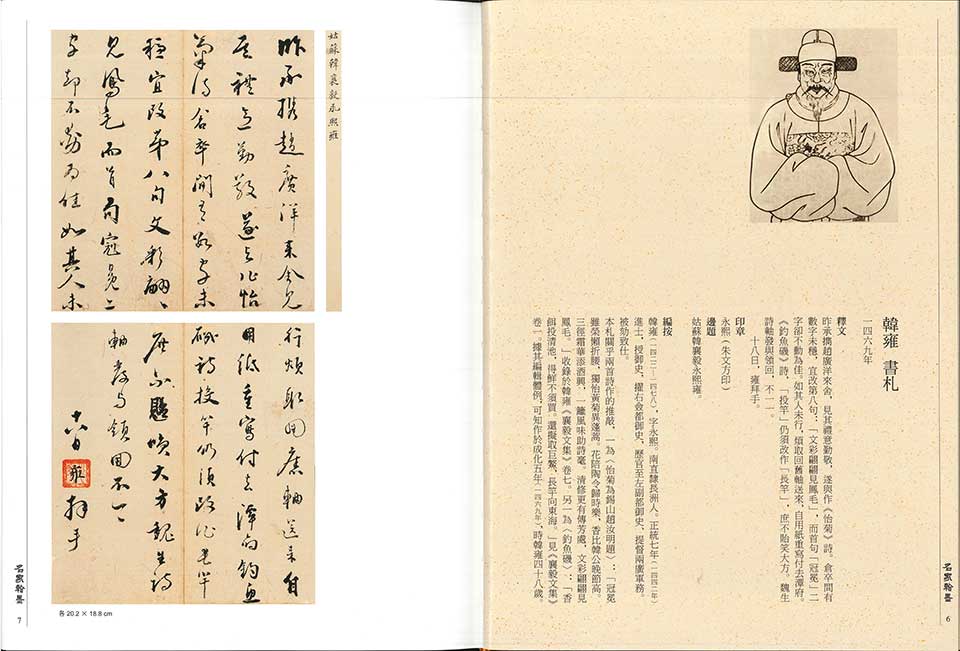 韓雍 書札
一四六九年
釋文
昨承攜趙廣洋來舍,見其禮意勤敬,遂與作《怡菊》詩。倉卒間有
數字未穩,宜改第八句,「文彩翩翩見鳳毛」,而首句「冠冕」二
字卻不動為佳。如其人未行,煩取回舊軸送來,自用紙重寫付去潭府
《釣魚磯》詩,「投竿」仍須改作「長竿」,庶不貽笑大方。魏生
詩軸發與領回,不一一。
十八日,雍拜手。
印章
永熙(朱文方印)
邊題
姑蘇韓襄毅永熙雍。
編按
韓雍(一四二二—一四七八),字永熙。南直隸長洲人。正統七年(一四四二年)
進士,授御史,擢右僉都御史,歷官至左副都御史、提督兩廣軍務。
被劾致仕。
本札關乎兩首詩作的推敲,一為〈怡菊為錫山趙汝明題〉:「冠冕
雖榮懶折腰,獨怡黃菊異蓬蒿。花陪陶令歸時樂,香比韓公晚節高。
三徑霜華添酒興,一籬風味助詩毫。清修更有傳芳處,文彩翩翩見
鳳毛。」收錄於韓雍《襄毅文集》卷七。另一為〈釣魚磯〉:「香
餌投清池,得鮮不須買。還擬取巨鰲,長竿向東海。」見《襄毅文集》
卷一。據其編輯體例,可知作於成化五年(一四六九年),時韓雍四十八歲。
名家翰墨
6
姑蘇韓襄毅永熙雍
昨承携趙廣洋来舍見
其禮意勤敬遂与作怡
菊詩倉卒間有數字未
穩宜改第八句文彩翩〻
見鳳毛而首句冠冕二
字却不動為佳如其人未
行煩取回舊軸送来自
用紙重寫付去潭府釣魚
磯詩投竿仍須改作長竿
庶不貽笑大方魏生詩
軸發与領回不一一
十八日 雍 拜手
各 20.2 × 18.8 cm
名家翰墨
7